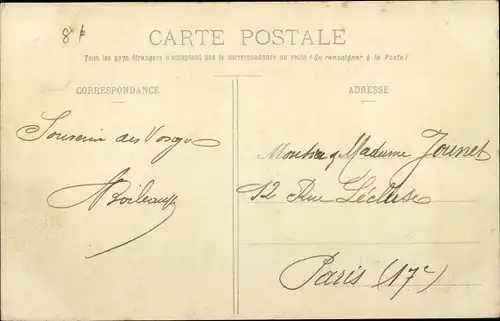 8
CARTE POSTALE
Tous les pays étrangers n'acceptent pas la correspondance au recto (Se renseigner à la Poste)
CORRESPONDANCE
Souvenir des Vosges
ADRESSE
Monsieur & Madame Jounet
12 Rue Lécluse
Paris (17e)